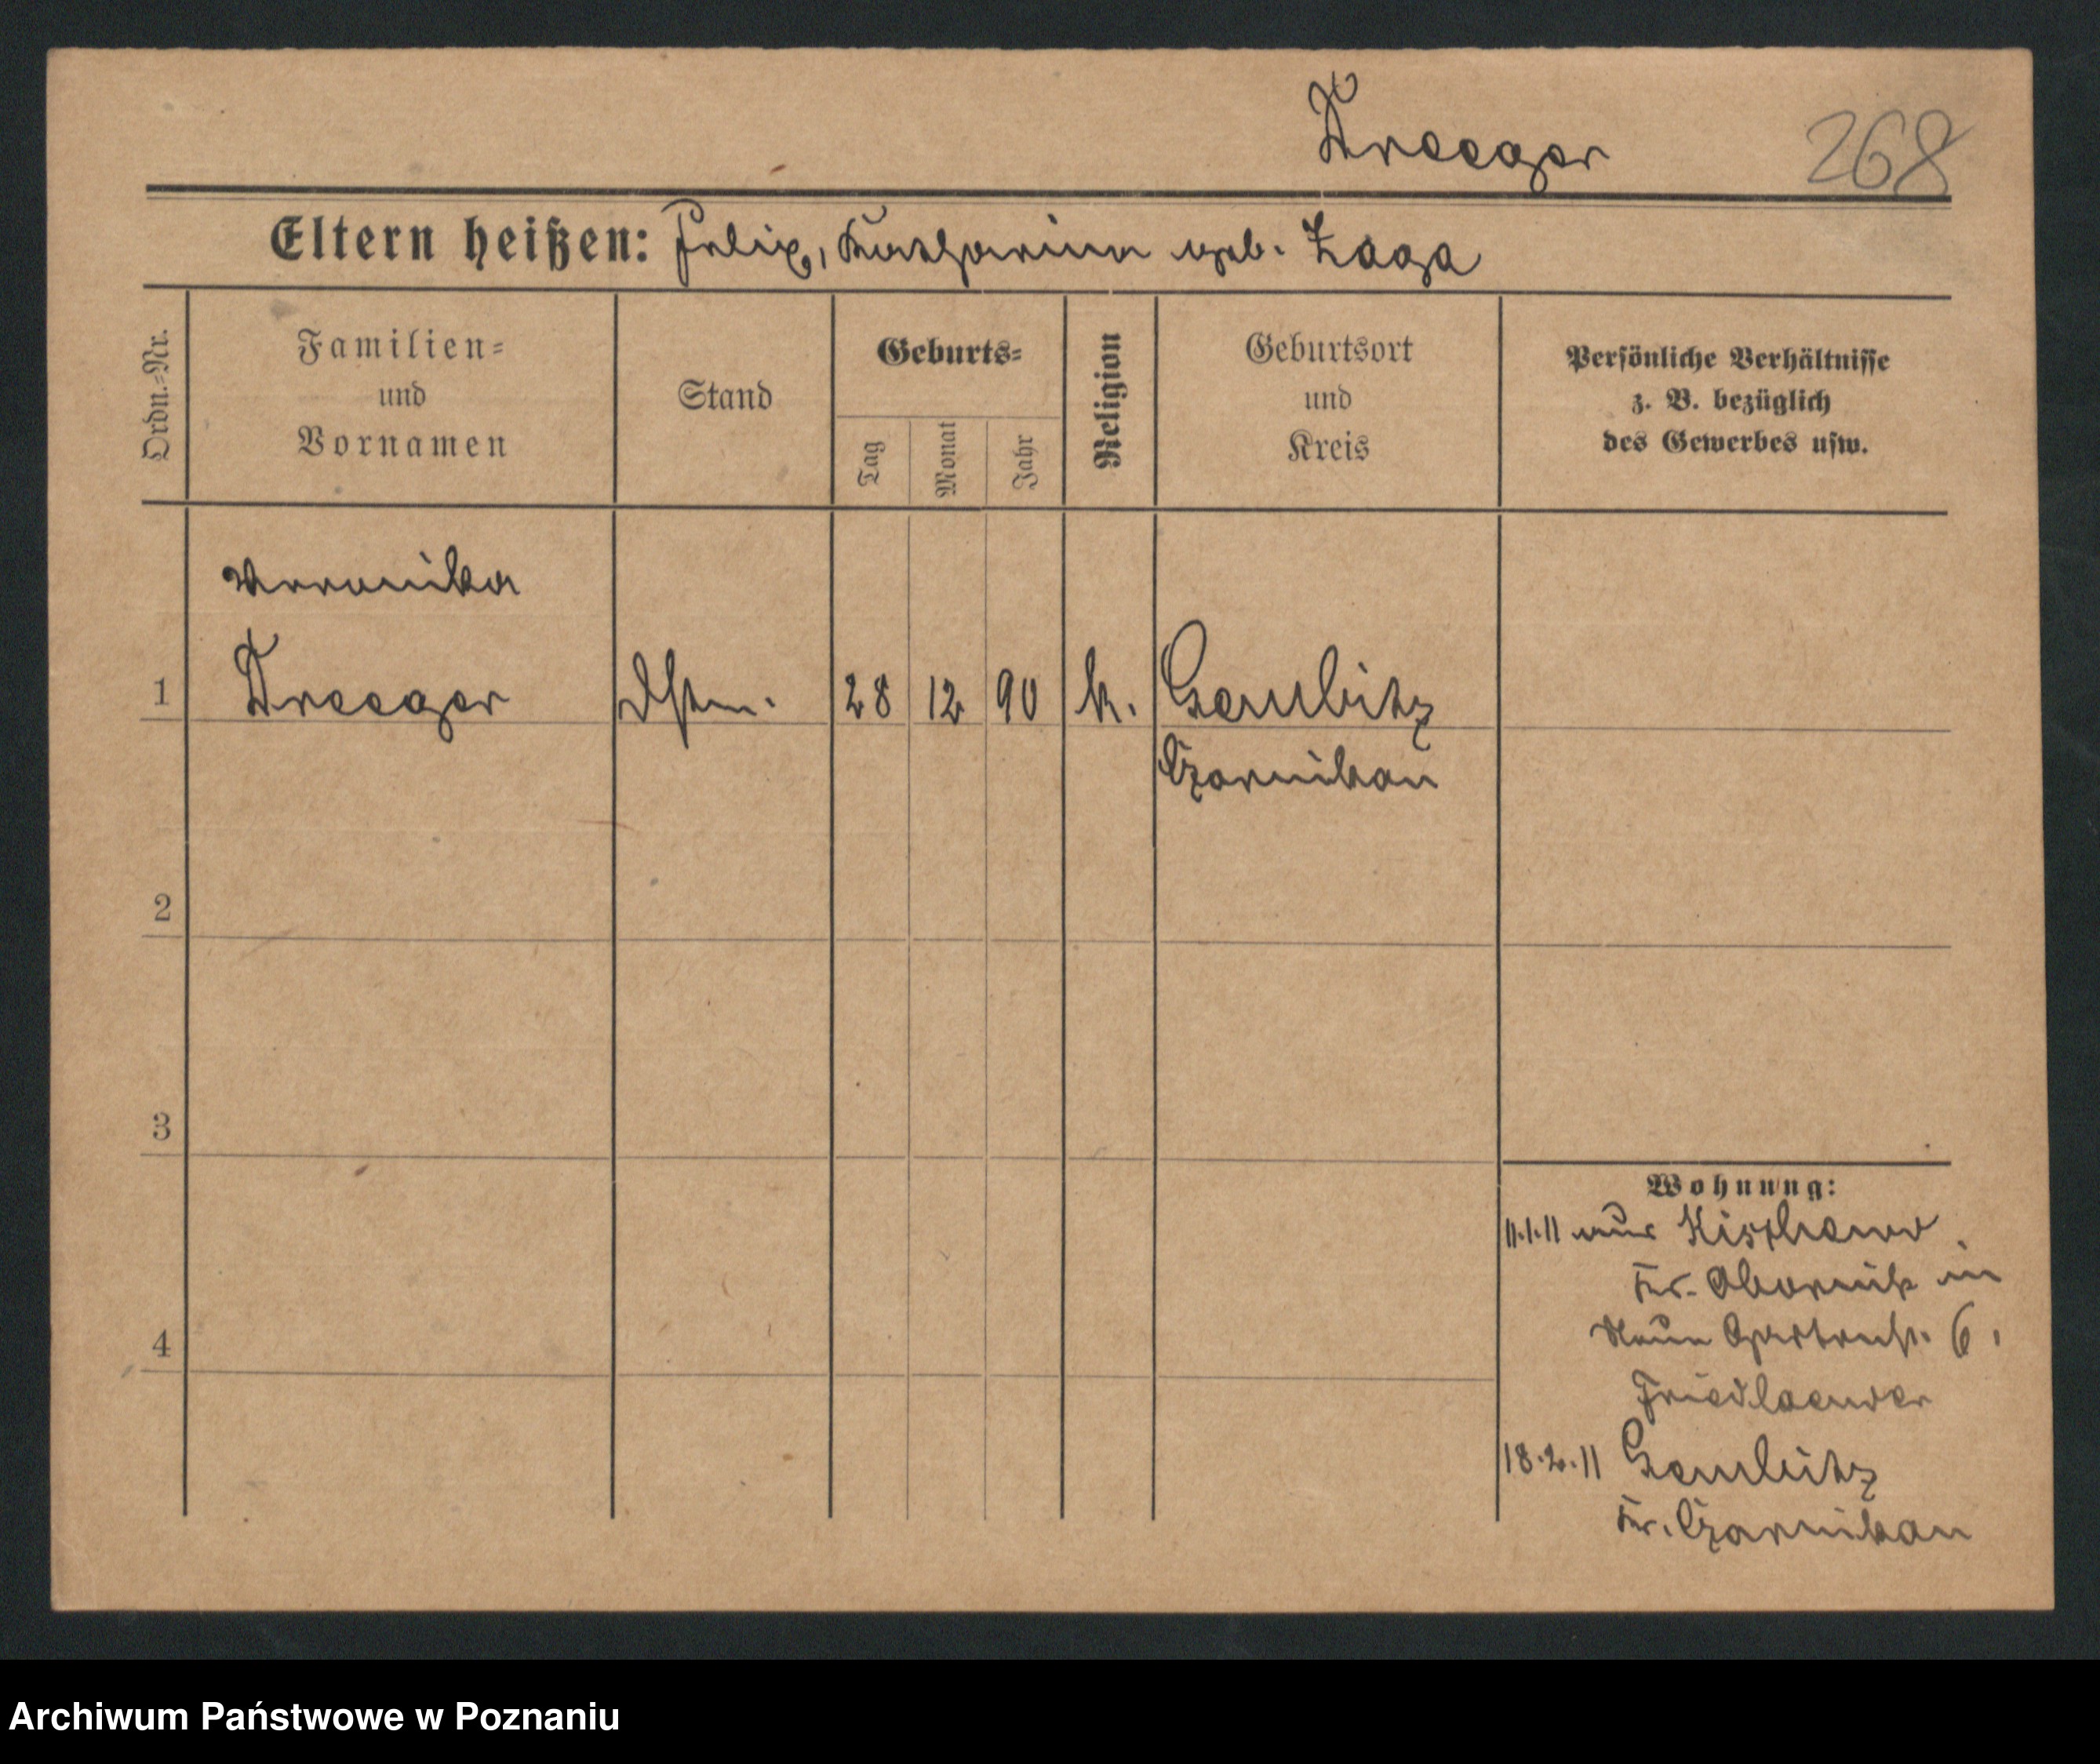 Kreeger 268
Eltern heißen: Felix, Katharina geb. Zaga
Ordn.=Nr.
Familien=
und
Vornamen
Stand
Geburts=
Tag
Monat
Jahr
Religion
Geburtsort
und
Kreis
Persönliche Verhältnisse
z. B. bezüglich
des Gewerbes usw.
Veronika
1 Kreeger Dstm. 28 12 90 k. Gembitz
Czarnikau
2
3
4
Wohnung:
11.1.11 aus
Kr. Obornik in
Neue Gartenstr. 6,
Friedlaender
18.2.11 Gembitz
Kr. Czarnikau
Archiwum Państwowe w Poznaniu